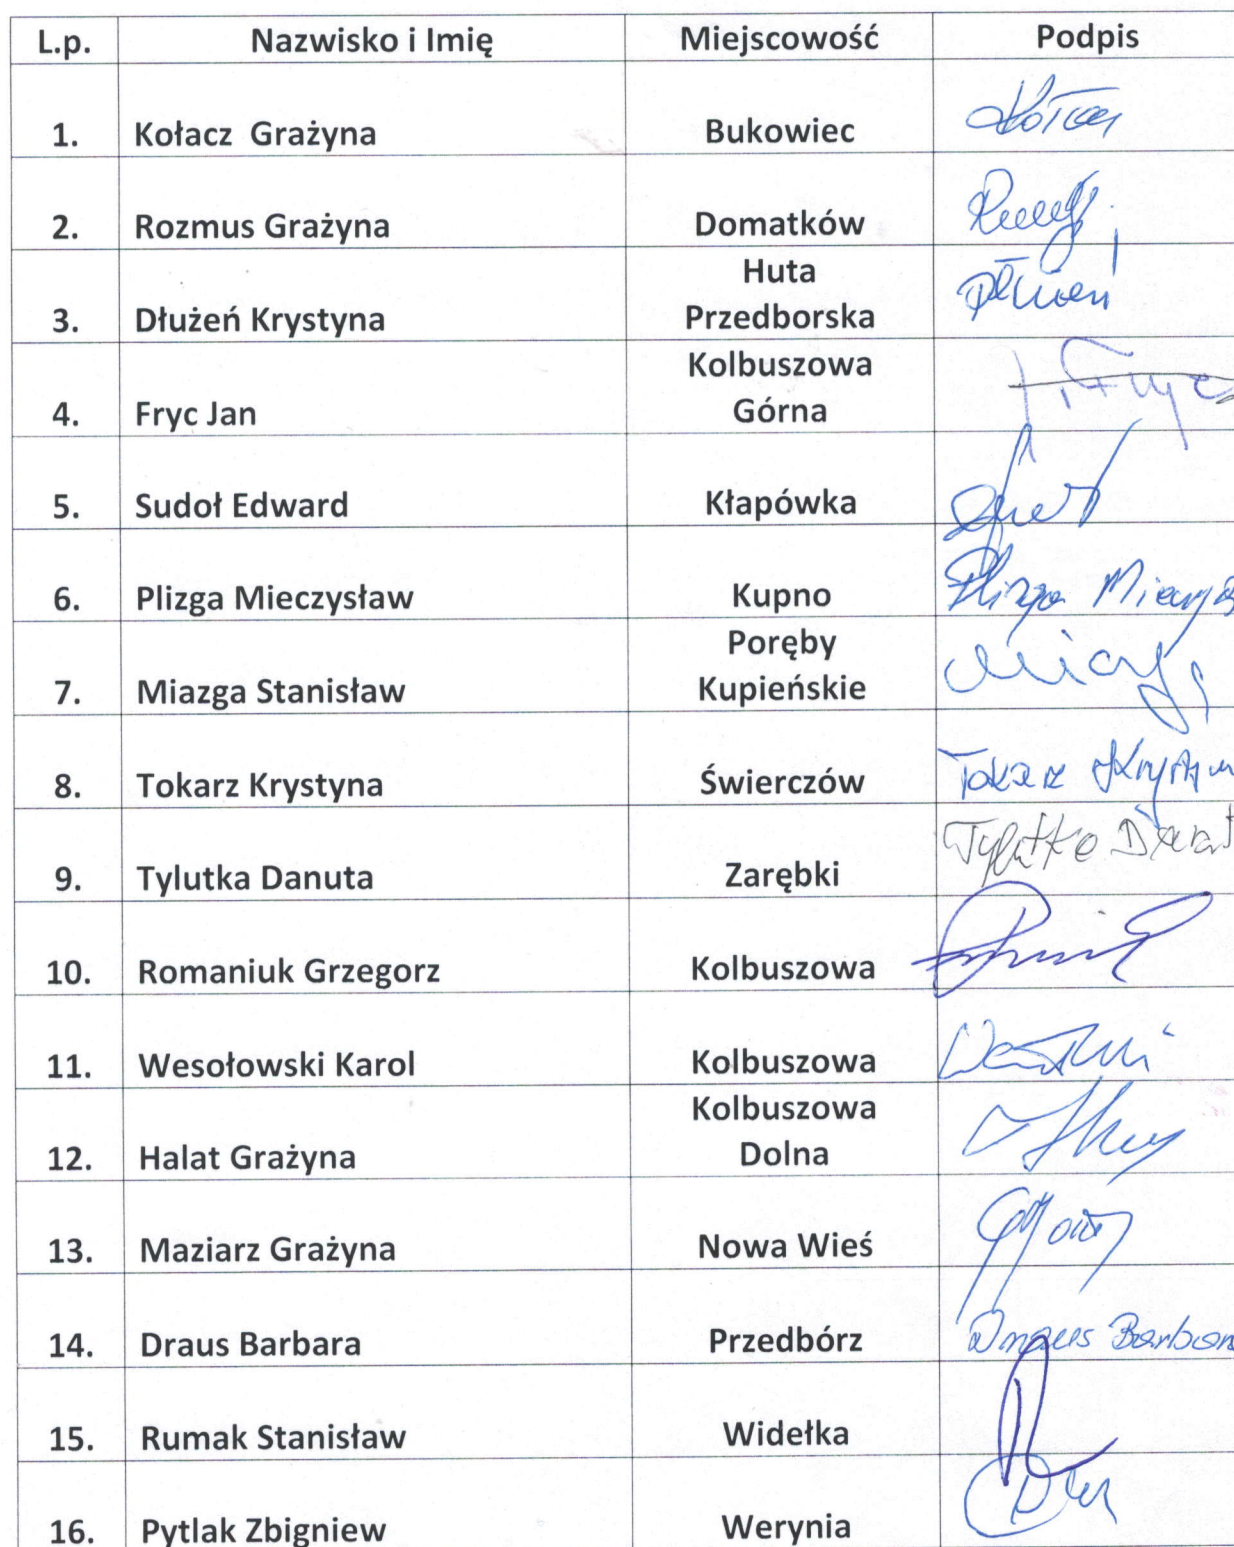 L.p. Nazwisko i Imię Miejscowość Podpis
1. Kołacz Grażyna Bukowiec
2. Rozmus Grażyna Domatków
Huta
3. Dłużeń Krystyna Przedborska
Kolbuszowa
4. Fryc Jan Górna
5. Sudoł Edward Kłapówka
6. Plizga Mieczysław Kupno Plizga
Poręby
7. Miazga Stanisław Kupieńskie
8. Tokarz Krystyna Świerczów Tokarz
9. Tylutka Danuta Zarębki
10. Romaniuk Grzegorz Kolbuszowa
11. Wesołowski Karol Kolbuszowa
Kolbuszowa
12. Halat Grażyna Dolna
13. Maziarz Grażyna Nowa Wieś
14. Draus Barbara Przedbórz Draus
15. Rumak Stanisław Widełka
16. Pytlak Zbigniew Werynia